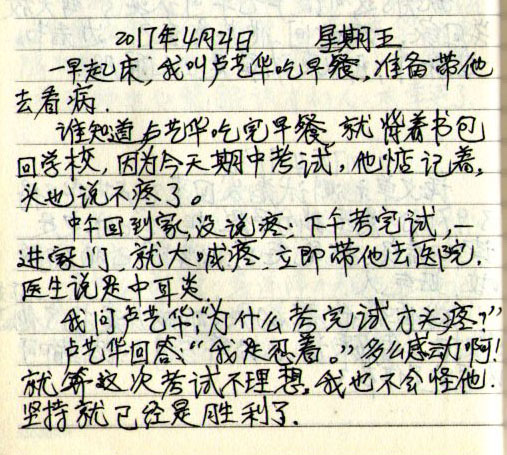 2017年4月24日 星期五
一早起床,我叫卢艺华吃早餐,准备带他
去看病.
谁知道卢艺华吃完早餐,就背着书包
回学校,因为今天期中考试,他惦记着,
头也说不疼了。
中午回到家,没说疼;下午考完试,一
进家门,就大喊疼,立即带他去医院.
医生说是中耳炎.
我问卢艺华:"为什么考完试才头疼?"
卢艺华回答:"我是忍着。"多么感动啊!
就算这次考试不理想,我也不会怪他.
坚持就已经是胜利了.